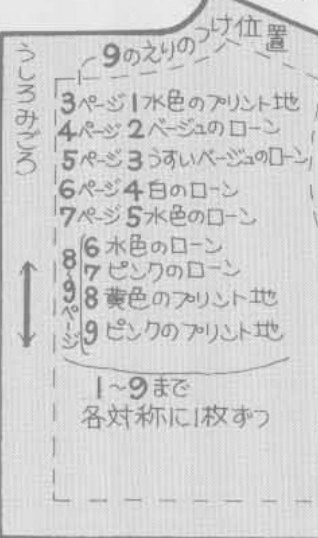 9のえりのつけ位置
うしろみごろ
3ページ 1水色のプリント地
4ページ 2ベージュのローン
5ページ 3うすいベージュのローン
6ページ 4白のローン
7ページ 5水色のローン
8~9ページ
6水色のローン
7ピンクのローン
8黄色のプリント地
9ピンクのプリント地
1~9まで
各対称に1枚ずつ